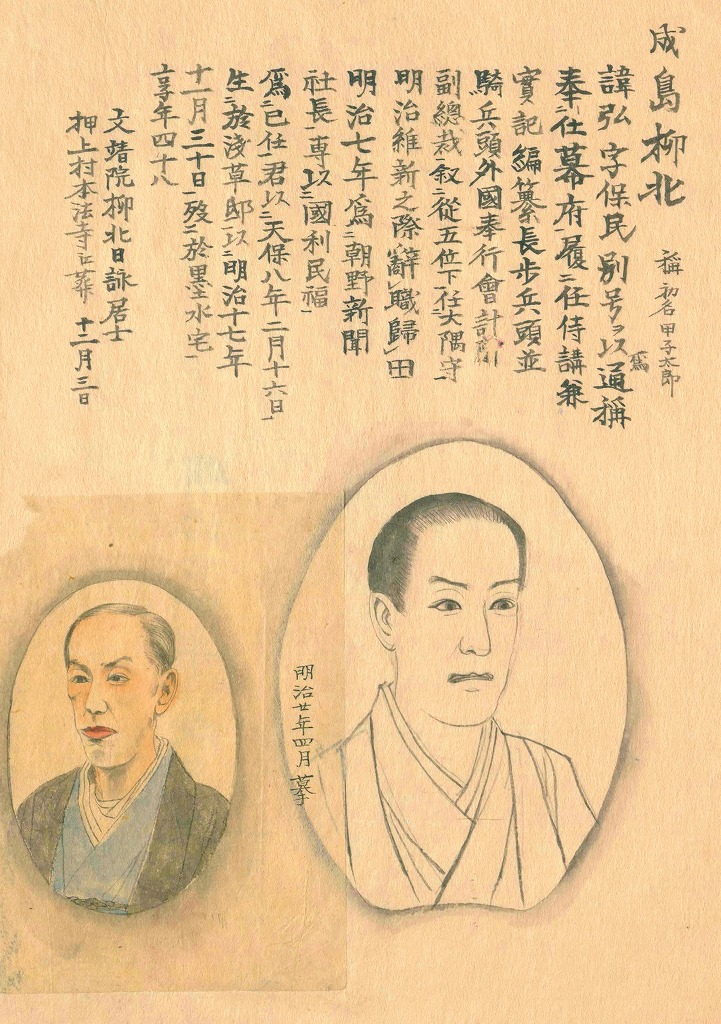 成島柳北
稱 初名甲子太郎
諱弘 字保民 別号ヲ以通稱
為
奉ニ仕幕府ニ履ニ任侍講兼
實記編纂長歩兵頭並
騎兵頭外國奉行會計
副總裁ニ叙ニ從五位下ニ任大隅守
明治維新之際辭職歸田
明治七年為ニ朝野新聞
社長ニ専以ニ國利民福
為ニ已任ニ君以ニ天保八年二月十六日
生ニ於淺草邸以ニ明治十七年
十一月三十日ニ歿ニ於墨水宅
享年四十八
文靖院柳北日詠居士
押上村本法寺江葬 十二月三日
明治廿年四月摹